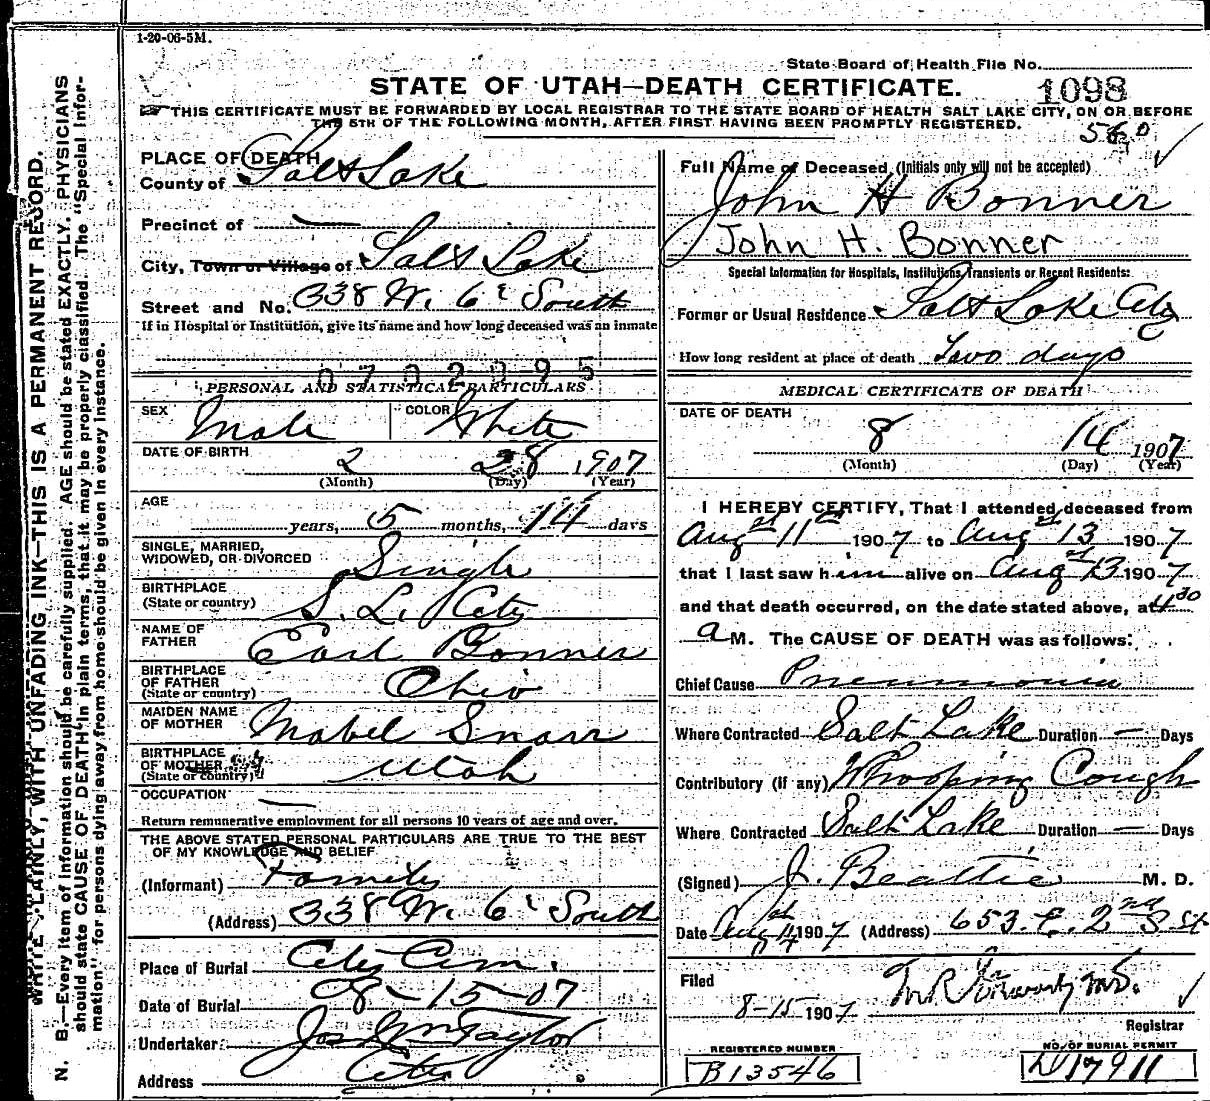 1-20-06-5M.
State Board of Health File No. 1098
STATE OF UTAH—DEATH CERTIFICATE.
THIS CERTIFICATE MUST BE FORWARDED BY LOCAL REGISTRAR TO THE STATE BOARD OF HEALTH SALT LAKE CITY, ON OR BEFORE
THE 5TH OF THE FOLLOWING MONTH, AFTER FIRST HAVING BEEN PROMPTLY REGISTERED.
PLACE OF DEATH
County of Salt Lake
Precinct of —
City, Town or Village of Salt Lake
Street and No. 338 W. 6" South
If in Hospital or Institution, give its name and how long deceased was an inmate
0702095
PERSONAL AND STATISTICAL PARTICULARS
SEX Male COLOR White
DATE OF BIRTH 2 28 1907
(Month) (Day) (Year)
AGE
years, 5 months, 14 days
SINGLE, MARRIED,
WIDOWED, OR DIVORCED Single
BIRTHPLACE
(State or country) S. L. City
NAME OF
FATHER Earl Bonner
BIRTHPLACE
OF FATHER
(State or country) Ohio
MAIDEN NAME
OF MOTHER Mabel Snarr
BIRTHPLACE
OF MOTHER
(State or country) Utah
OCCUPATION —
Return remunerative employment for all persons 10 years of age and over.
THE ABOVE STATED PERSONAL PARTICULARS ARE TRUE TO THE BEST
OF MY KNOWLEDGE AND BELIEF
(Informant) Family
(Address) 338 W. 6" South
Place of Burial City Cem.
Date of Burial 08-15-07
Undertaker Jos Wm Taylor
Address City
Full Name of Deceased (Initials only will not be accepted)
John H Bonner
John H. Bonner
Special Information for Hospitals, Institutions, Transients or Recent Residents:
Former or Usual Residence Salt Lake City
How long resident at place of death Two days
MEDICAL CERTIFICATE OF DEATH
DATE OF DEATH
8 14 1907
(Month) (Day) (Year)
I HEREBY CERTIFY, That I attended deceased from
Aug 11 1907 to Aug 13 1907
that I last saw him alive on Aug 13 1907
and that death occurred, on the date stated above, at 4 30
a M. The CAUSE OF DEATH was as follows:
Chief Cause Pneumonia
Where Contracted Salt Lake Duration — Days
Contributory (if any) Whooping Cough
Where Contracted Salt Lake Duration — Days
(Signed) J. Beattie M. D.
Date Aug 14 1907 (Address) 653 E. 2nd S St
Filed
8-15 1907
Registrar
REGISTERED NUMBER
B13546
NO. OF BURIAL PERMIT
17911
WRITE PLAINLY, WITH UNFADING INK—THIS IS A PERMANENT RECORD.
N. B.—Every item of information should be carefully supplied. AGE should be stated EXACTLY. PHYSICIANS
should state CAUSE OF DEATH in plain terms, that it may be properly classified. The "Special Infor-
mation" for persons dying away from home should be given in every instance.